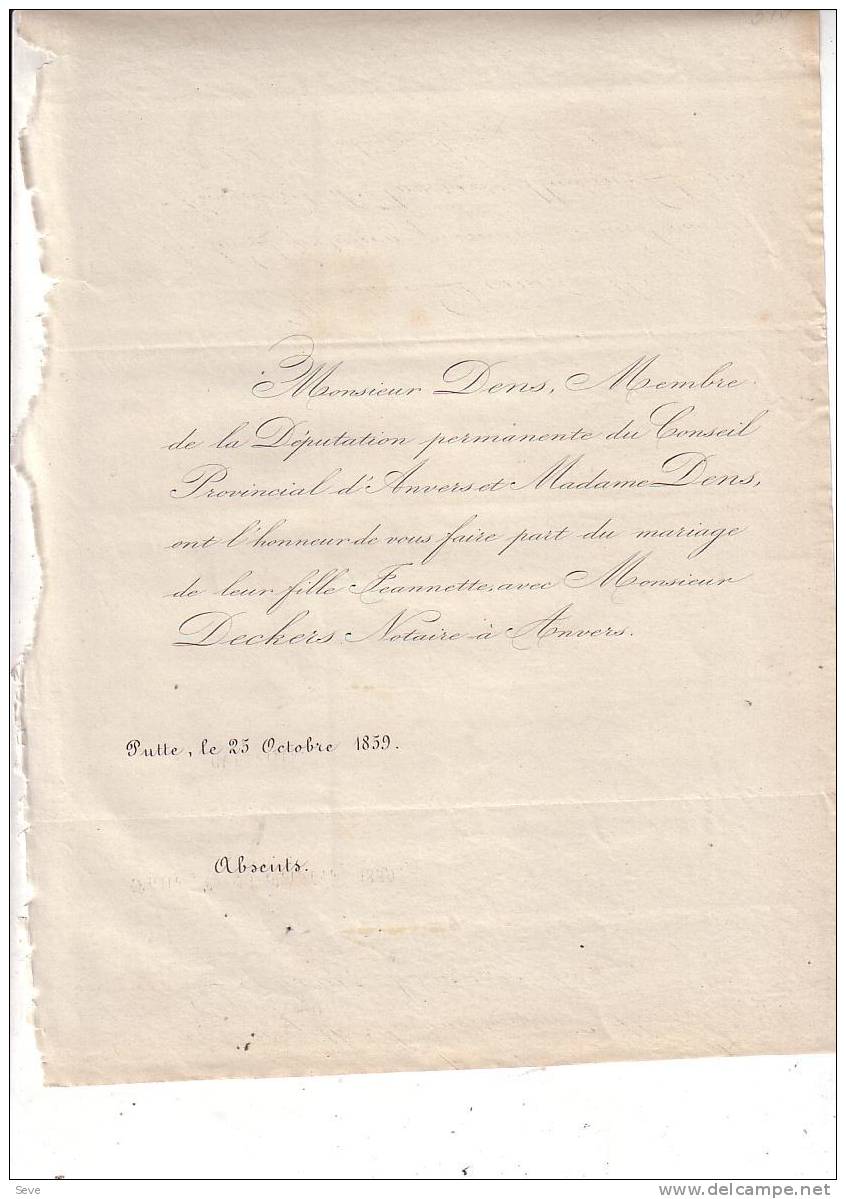 Monsieur Dens, Membre
de la Députation permanente du Conseil
Provincial d'Anvers et Madame Dens,
ont l'honneur de vous faire part du mariage
de leur fille Jeannette, avec Monsieur
Deckers Notaire à Anvers.
Putte, le 25 Octobre 1859.
Absents.
Seve
www.delcampe.net